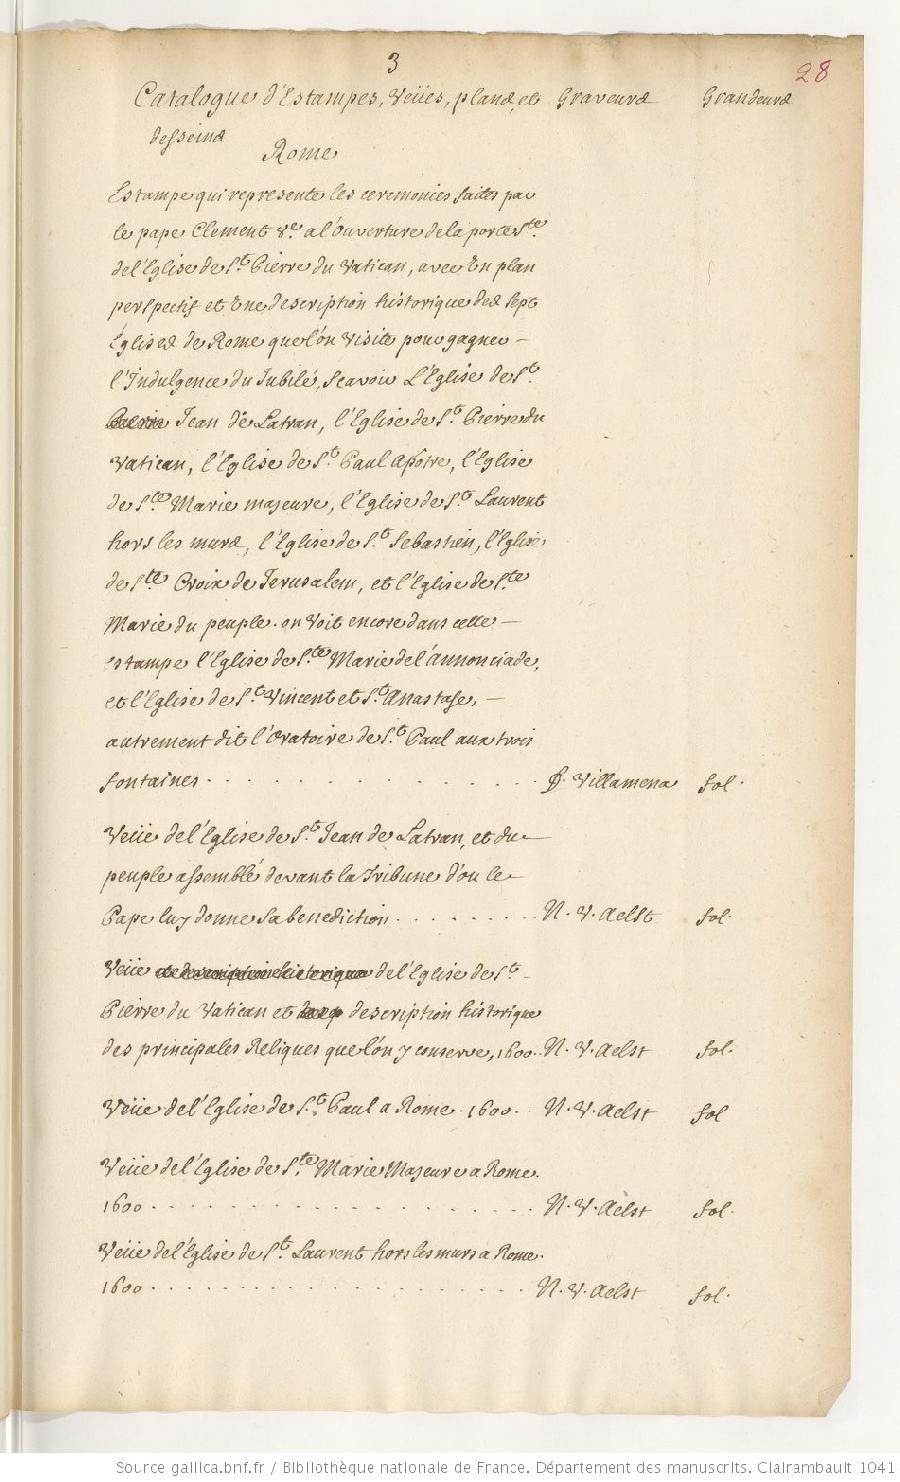 3
28
Catalogue d'Estampes, Veües, plans, et Graveurs Grandeurs
desseins
Rome
Estampe qui represente les ceremonies faites par
le pape Clement 8.e a l'ouverture de la porte S.te
de l'Eglise de S.t Pierre du Vatican, avec Un plan
perspectif et Une description historique des sept
Églises de Rome que l'on Visite pour gagner –
l'Indulgence du Jubilé, Scavoir L'Eglise de S.t
Jean de Latran, l'Eglise de S.t Pierre du
Vatican, l'Eglise de S.t Paul Apotre, l'Eglise
de S.te Marie majeure, l'Eglise de S.t Laurent
hors les murs, l'Eglise de S.t Sebastien, l'Eglise
de S.te Croix de Jerusalem, et l'Eglise de S.te
Marie du peuple. on Voit encore dans cette –
estampe l'Eglise de S.te Marie de l'annonciade,
et l'Eglise de S.t Vincent et S.t Anastase, –
autrement dit l'Oratoire de S.t Paul aux trois
fontaines . . . . . . . . . . . . . Villamena fol.
Veüe de l'Eglise de S.t Jean de Latran, et du
peuple assemblé devant la Tribune d'ou le
Pape luy donne sa benediction . . . . . . . . N. V. Aelst fol.
Veüe et description historique de l'Eglise de S.t –
Pierre du Vatican et description historique
des principales Reliques que l'on y conserve, 1600. N. V. Aelst fol.
Veüe de l'Eglise de S.t Paul a Rome. 1600. N. V. Aelst fol
Veüe de l'Eglise de S.te Marie Majeure a Rome.
1600 . . . . . . . . . . . . . . . . . . N. V. Aelst fol.
Veüe de l'Eglise de S.t Laurent hors les murs a Rome.
1600 . . . . . . . . . . . . . . . . . . N. V. Aelst fol.
Source gallica.bnf.fr / Bibliothèque nationale de France. Département des manuscrits. Clairambault 1041